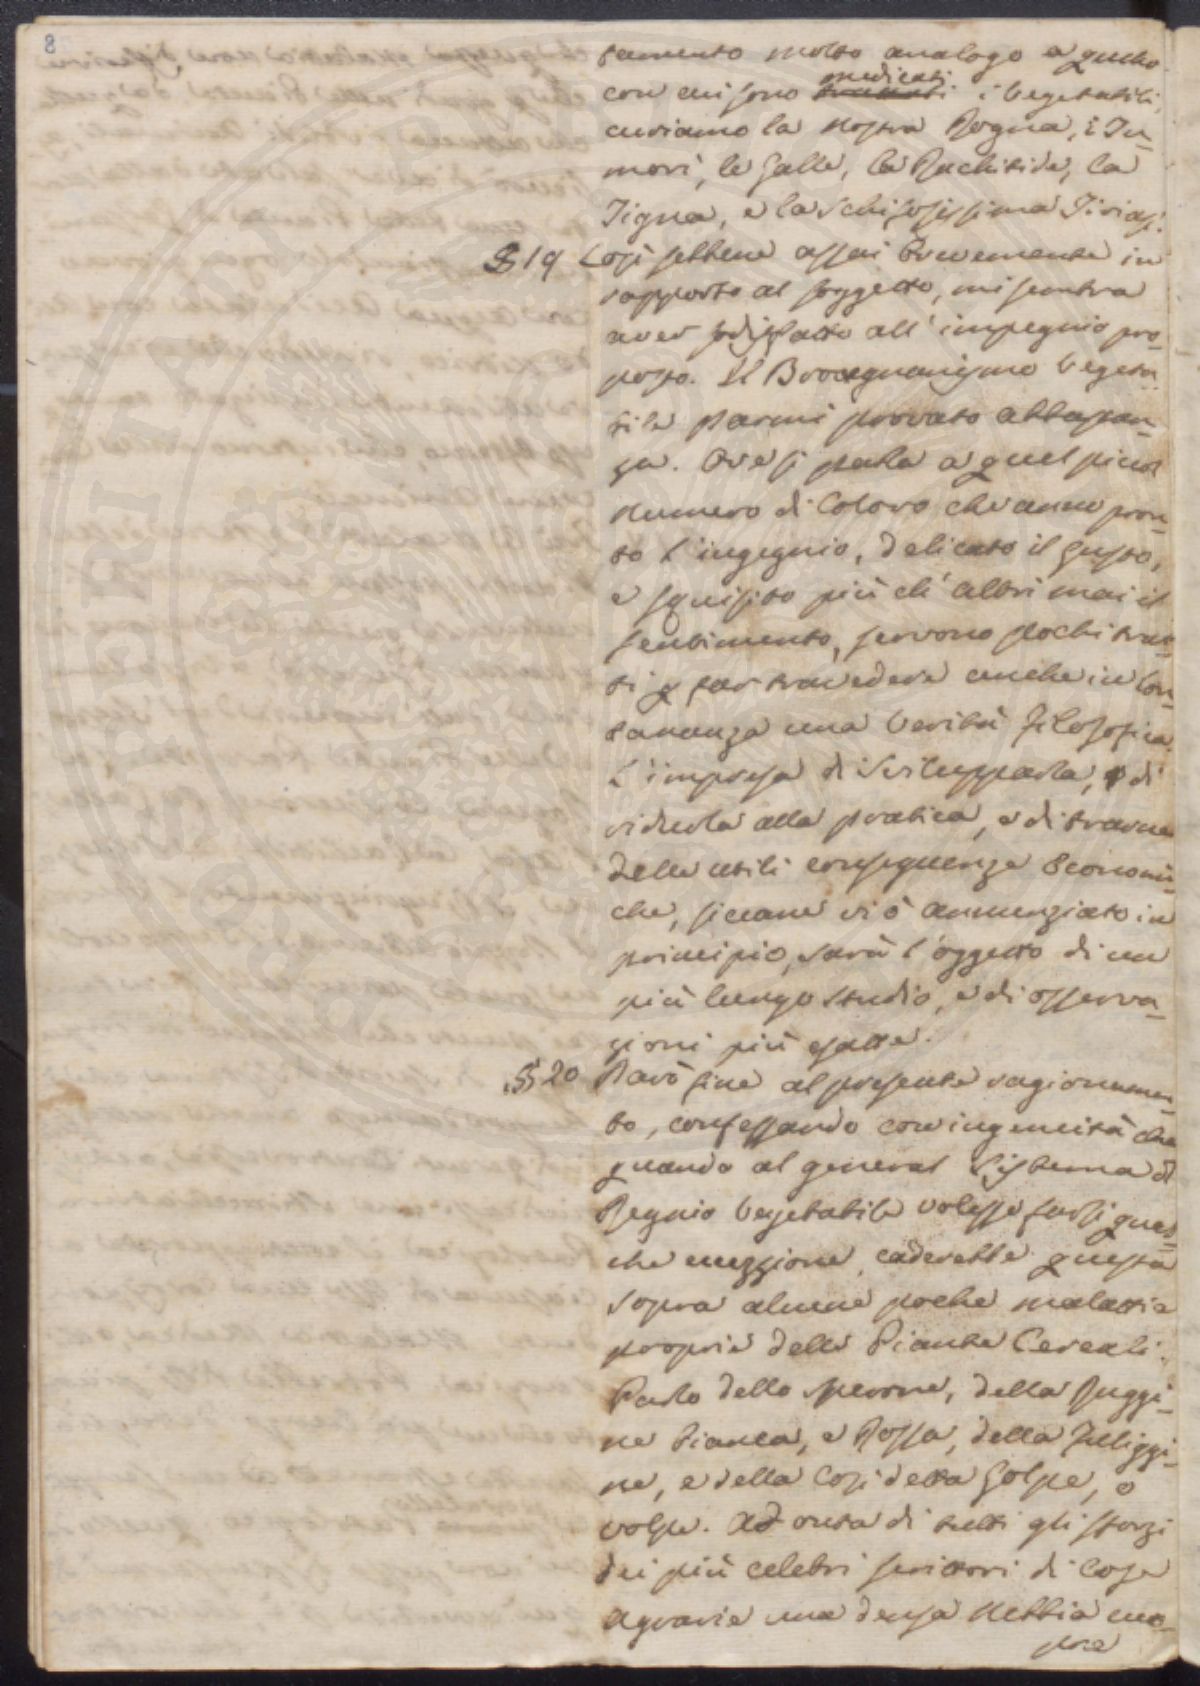 8
tamento molto analogo a quello
con cui sono medicati i Vegetabili,
curiamo la nostra Rogna, i Tu-
mori, le Galle, la Rachitide, la
Tigna, e la schifosissima Tiriasi.
§ 19 Così sebbene assai brevemente in
rapporto al soggetto, mi sembra
aver sodisfatto all'impegnio pro-
posto. Il Vegeta
bile parmi provato abbastan-
za. Ove si parla a quel picciol
numero di Coloro che anno pron-
to l'ingegnio, delicato il Gusto,
e squisito più ch'altri mai il
sentimento, servono pochi trat-
ti p far travedere anche in lon-
tananza una Verità Filosofica.
L'impresa di Svilupparla, di
ridurla alla pratica, e di trarne
delle utili conseguenze Economi-
che, siccome vi ò annunziato in
principio, sarà l'oggetto di un
più lungo studio, e di osserva-
zioni più esatte.
§ 20 Darò fine al presente ragionamen-
to, confessando con ingenuità che
quando al general Sistema del
Regnio Vegetabile volesse farsi qual-
che eccezzione, caderebbe questa
sopra alcune poche malattie
proprie delle Piante Cereali.
Parlo dello sperone, della Ruggi-
ne bianca, e Rossa, della Fuliggi-
ne, e della Così detta Golpe, o
volpe. Ad onta di tutti gli sforzi
dei più celebri scrittori di Cose
Agrarie una densa Nebbia cuo-
pre